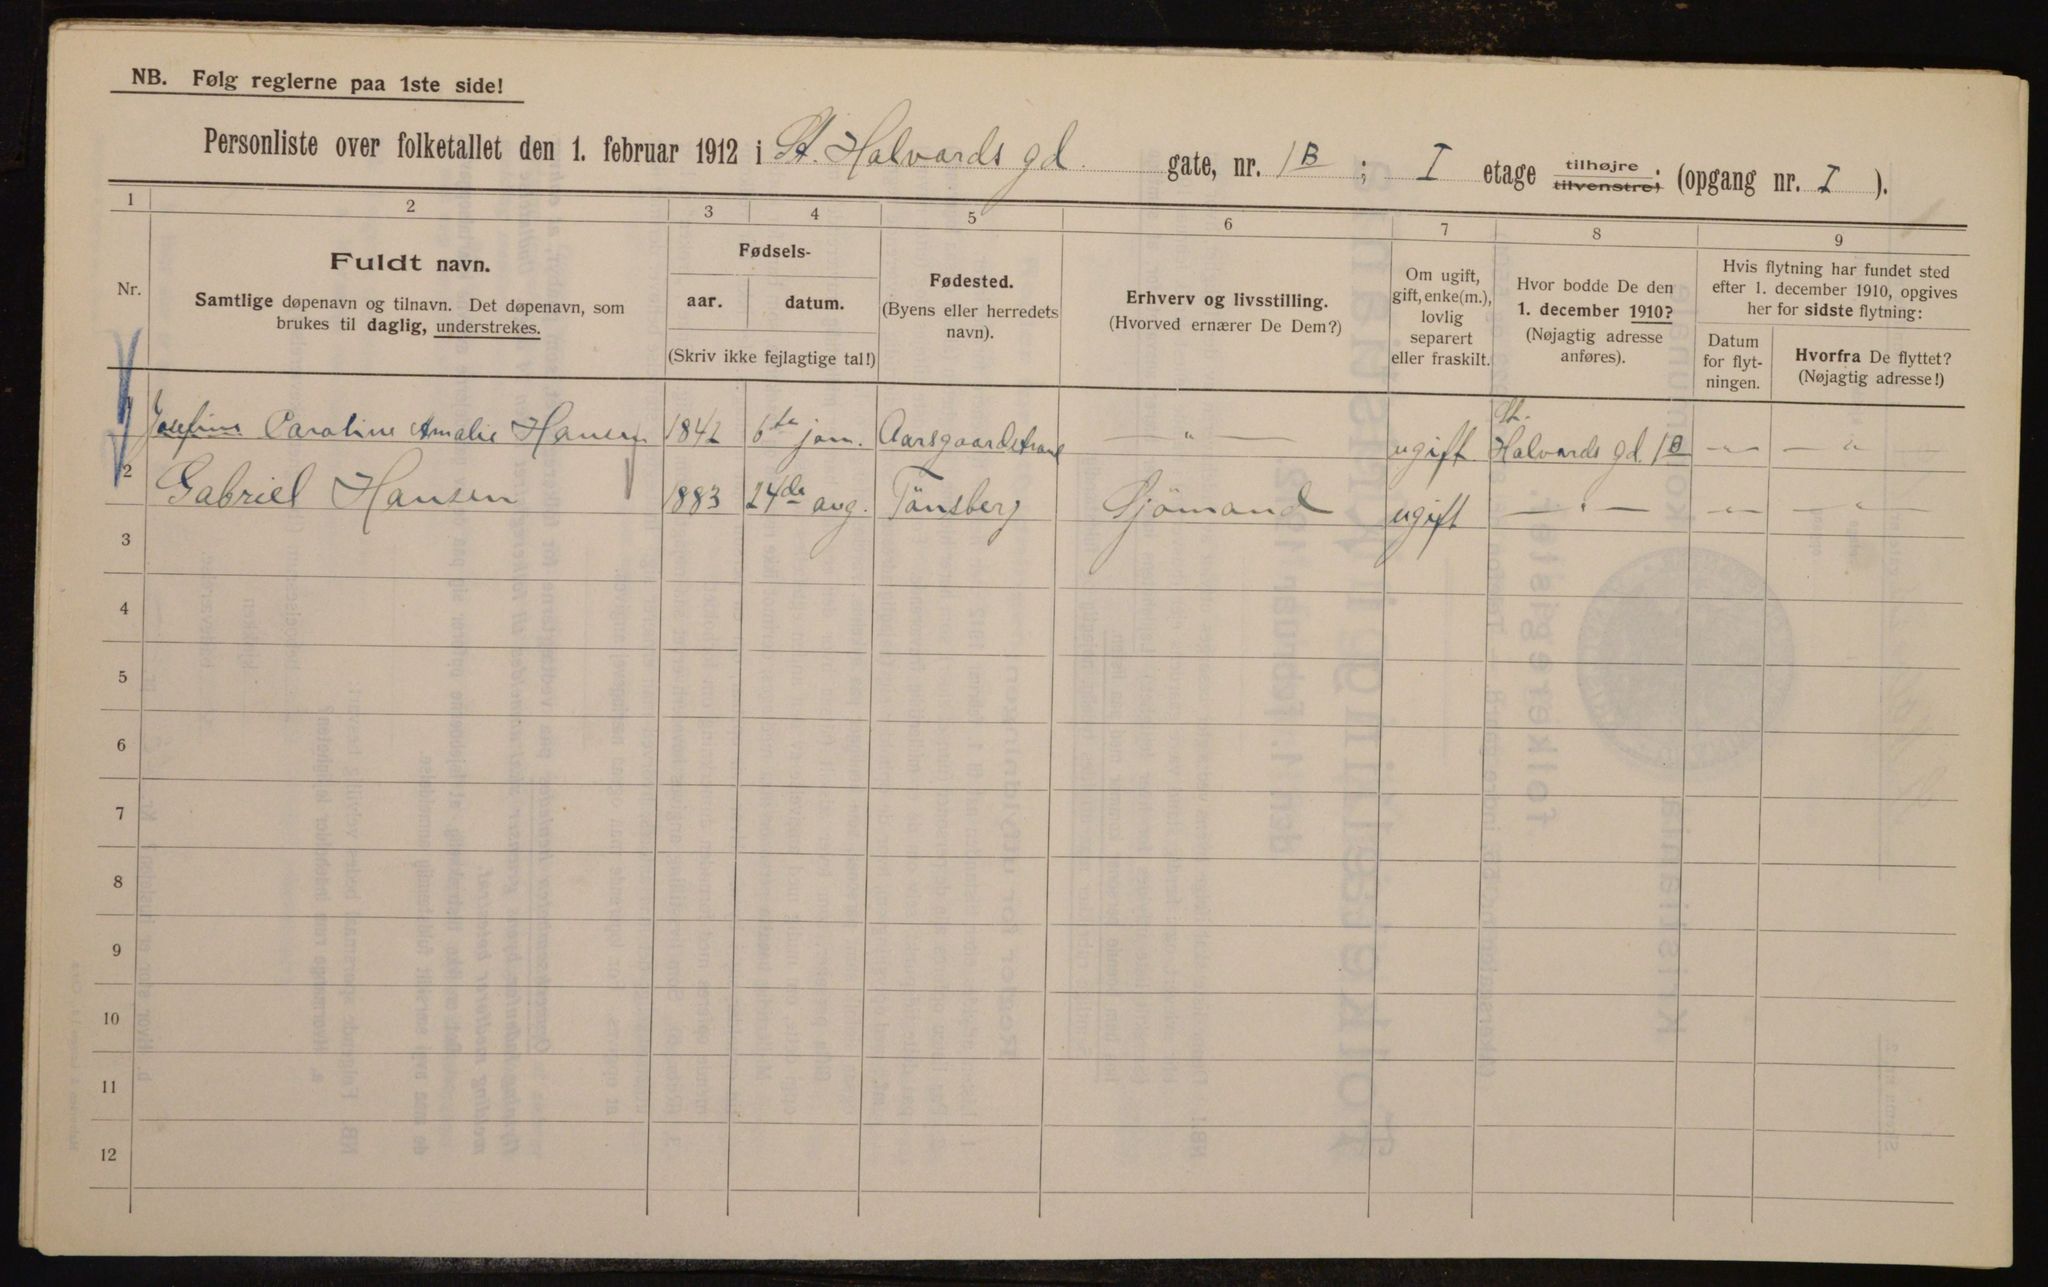 NB. Følg reglerne paa 1ste side!
Personliste over folketallet den 1. februar 1912 i St. Halvards gd. gate, nr. 1B ; I etage tilhøjre tilvenstre; (opgang nr. I ).
1 2 3 4 5 6 7 8 9
Nr.
Fuldt navn.
Samtlige døpenavn og tilnavn. Det døpenavn, som
brukes til daglig, understrekes.
Fødsels-
aar. datum.
(Skriv ikke fejlagtige tal!)
Fødested.
(Byens eller herredets
navn).
Erhverv og livsstilling.
(Hvorved ernærer De Dem?)
Om ugift,
gift, enke(m.),
lovlig
separert
eller fraskilt.
Hvor bodde De den
1. december 1910?
(Nøjagtig adresse
anføres).
Hvis flytning har fundet sted
efter 1. december 1910, opgives
her for sidste flytning:
Datum
for flyt-
ningen.
Hvorfra De flyttet?
(Nøjagtig adresse!)
1 Josefine Caroline Amalie Hansen 1842 6te jan. Aarsgaardstrand — " — ugift St. Halvards gd. 1B — " — — " —
2 Gabriel Hansen 1883 24de aug. Tönsberg Sjömand ugift — " — — " — — " —
3
4
5
6
7
8
9
10
11
12